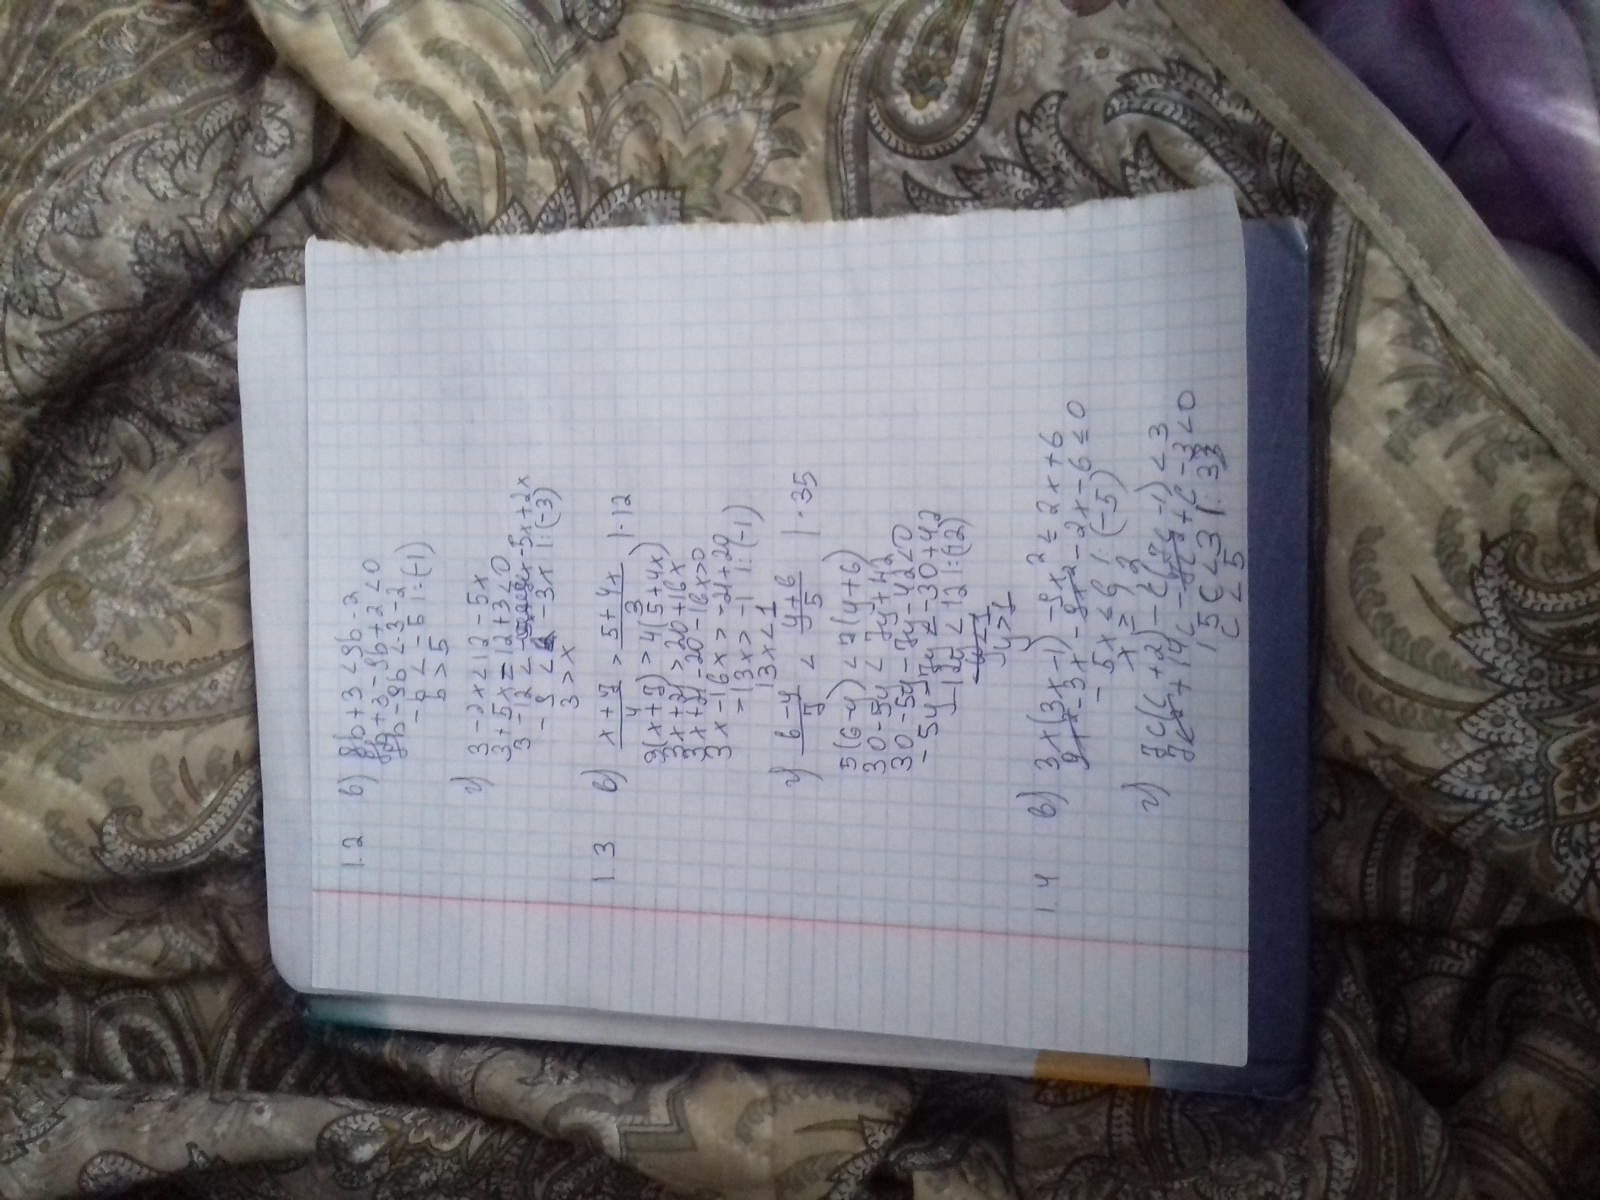 1.2 в) 8b+3<9b-2
8b+3-9b+2<0
8b-9b<-3-2
-b<-5 |:(-1)
b>5
г) 3-2x<12-5x
3+5x=12+3<0
3-12<-5x+2x
-9<-3x |:(-3)
3>x
1.3 в) x+7/4 > 5+4x/3 |·12
3(x+7)>4(5+4x)
3x+21>20+16x
3x+21-20-16x>0
3x-16x>-21+20
-13x>-1 |:(-1)
13x<1
г) 6-y/7 < y+6/5 |·35
5(6-y)<7(y+6)
30-5y<7y+42
30-5y-7y-42<0
-5y-7y<-30+42
-12y<12 |:(12)
y>1
1.4 в) 3x(3x-1)-9x²≤2x+6
9x²-3x-9x²-2x-6≤0
-5x≤6 |:(-5)
x≥
г) 7c(c+2)-c(7c-1)<3
7c²+14c-7c²+c-3<0
15c<3 |:3
c<5